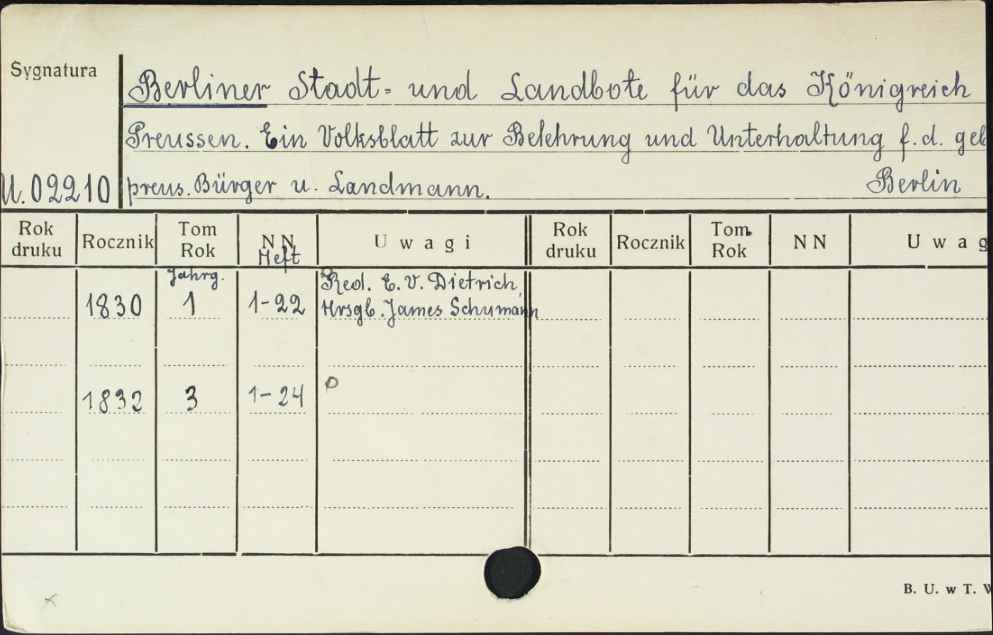 Sygnatura
Berliner Stadt- und Landbote für das Königreich
Preussen. Ein Volksblatt zur Belehrung und Unterhaltung f. d. geb
U. 02210 preus. Bürger u. Landmann. Berlin
Rok druku Rocznik Tom Rok NN Heft Uwagi Rok druku Rocznik Tom Rok NN Uwag
Jahrg. Red. E. V. Dietrich,
1830 1 1-22 Hrsgb. James Schumann
1832 3 1-24
B. U. w T.